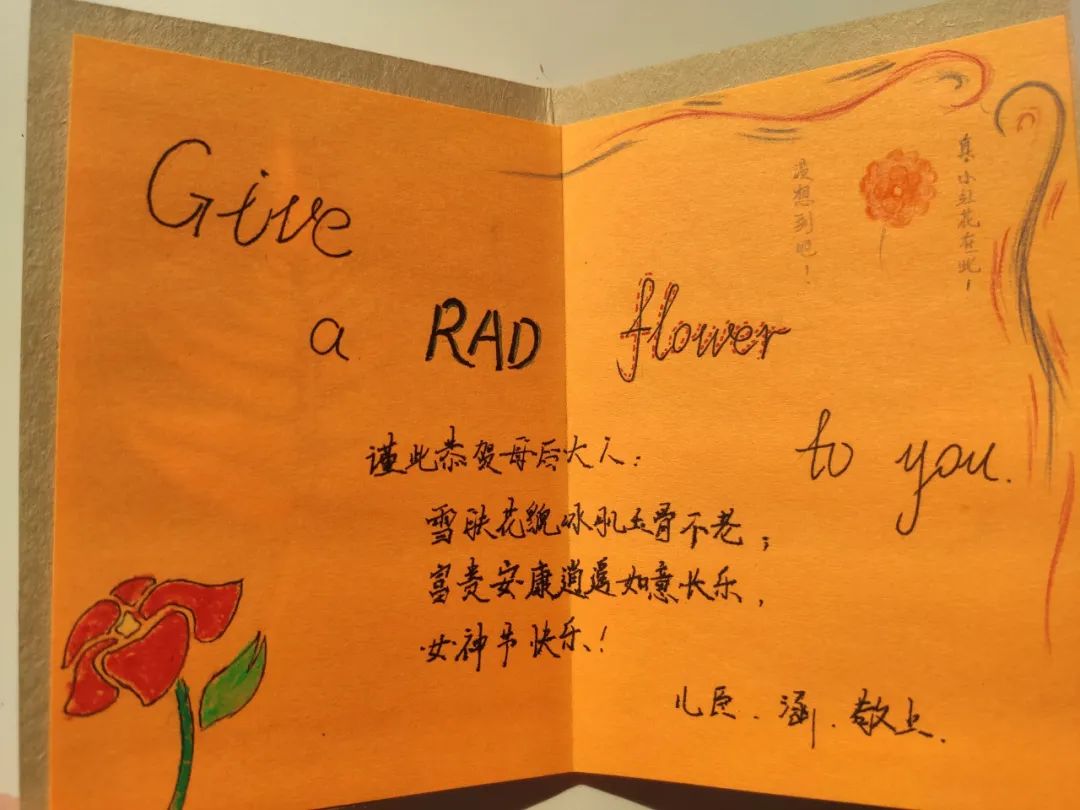 Give
a RAD flower
to you.
真·小红花在此！
没想到吧！
谨此恭贺母后大人：
雪肤花貌冰肌玉骨不老；
富贵安康逍遥如意长乐，
女神节快乐！
儿臣.涵.敬上.